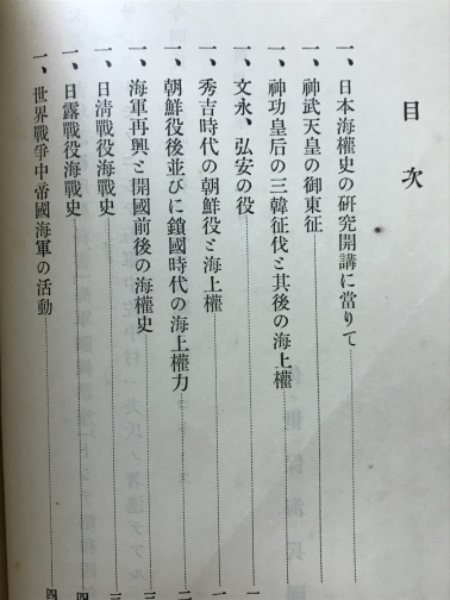 目次
一、日本海權史の研究開講に當りて
一、神武天皇の御東征
一、神功皇后の三韓征伐と其後の海上權
一、文永、弘安の役
一、秀吉時代の朝鮮役と海上權
一、朝鮮役後並びに鎖國時代の海上權力
一、海軍再興と開國前後の海權史
一、日淸戰役海戰史
一、日露戰役海戰史
一、世界戰爭中帝國海軍の活動